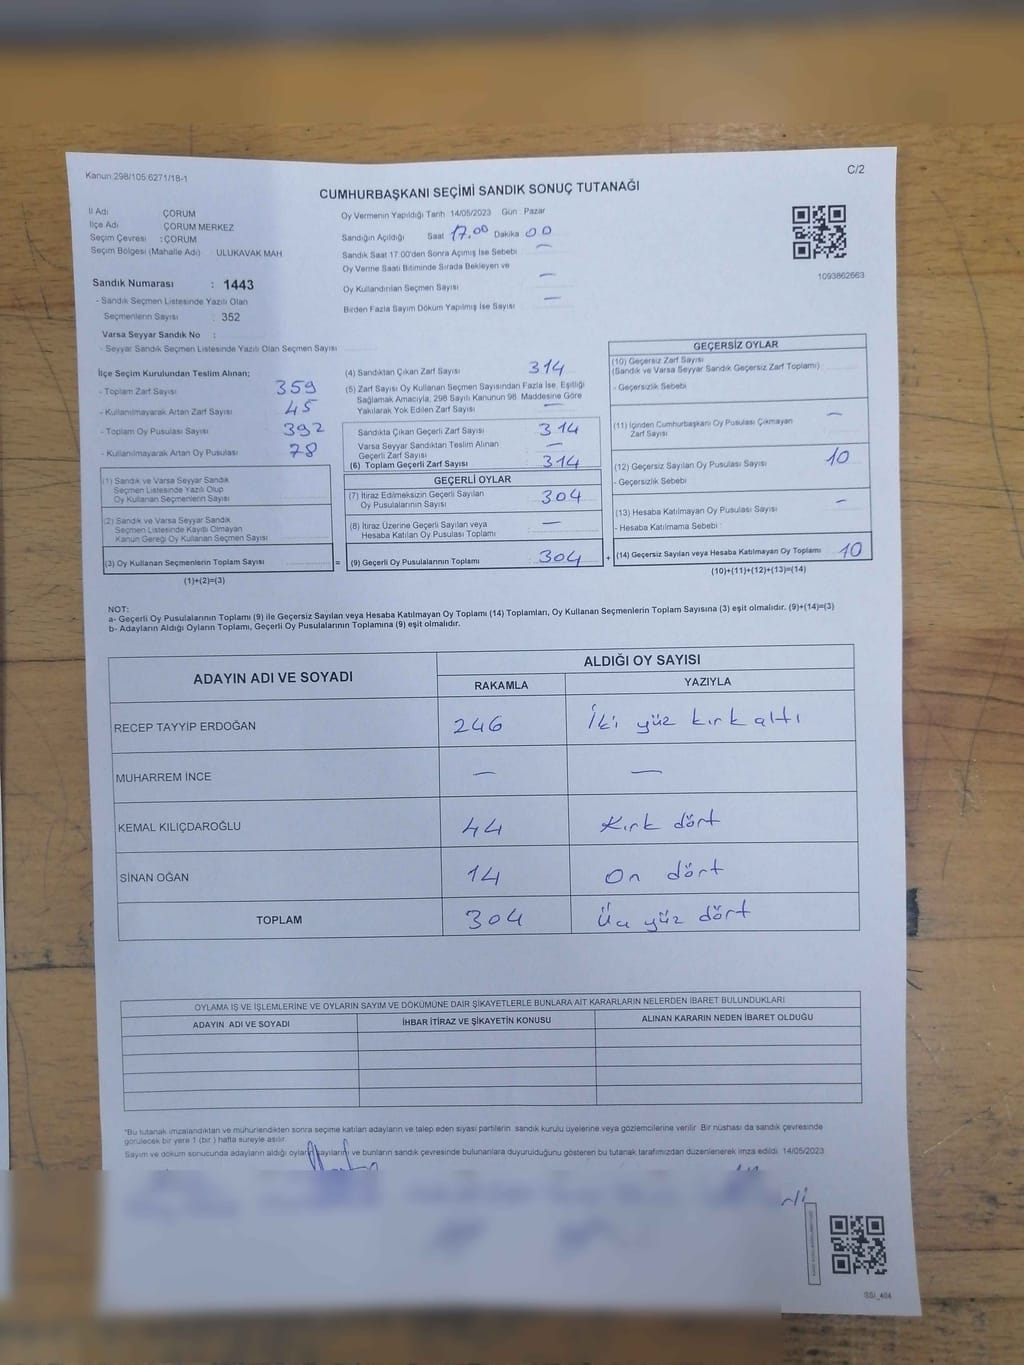 Kanun:298/105,6271/18-1
C/2
CUMHURBAŞKANI SEÇİMİ SANDIK SONUÇ TUTANAĞI
İl Adı ÇORUM
İlçe Adı ÇORUM MERKEZ
Seçim Çevresi : ÇORUM
Seçim Bölgesi (Mahalle Adı) ULUKAVAK MAH
Sandık Numarası : 1443
- Sandık Seçmen Listesinde Yazılı Olan
Seçmenlerin Sayısı : 352
Varsa Seyyar Sandık No :
- Seyyar Sandık Seçmen Listesinde Yazılı Olan Seçmen Sayısı
Oy Vermenin Yapıldığı Tarih 14/05/2023 Gün : Pazar
Sandığın Açıldığı Saat 17.00 Dakika 00
Sandık Saat 17.00'den Sonra Açımış İse Sebebi —
Oy Verme Saati Bitiminde Sırada Bekleyen ve
Oy Kullandırılan Seçmen Sayısı —
Birden Fazla Sayım Döküm Yapılmış İse Sayısı —
1093862663
İlçe Seçim Kurulundan Teslim Alınan;
- Toplam Zarf Sayısı 359
- Kullanılmayarak Artan Zarf Sayısı 45
- Toplam Oy Pusulası Sayısı 392
- Kullanılmayarak Artan Oy Pusulası 78
(1) Sandık ve Varsa Seyyar Sandık
Seçmen Listesinde Yazılı Olup
Oy Kullanan Seçmenlerin Sayısı
(2) Sandık ve Varsa Seyyar Sandık
Seçmen Listesinde Kayıtlı Olmayan
Kanun Gereği Oy Kullanan Seçmen Sayısı
(3) Oy Kullanan Seçmenlerin Toplam Sayısı
(1)+(2)=(3)
(4) Sandıktan Çıkan Zarf Sayısı 314
(5) Zarf Sayısı Oy Kullanan Seçmen Sayısından Fazla İse, Eşitliği
Sağlamak Amacıyla, 298 Sayılı Kanunun 98. Maddesine Göre
Yakılarak Yok Edilen Zarf Sayısı
Sandıkta Çıkan Geçerli Zarf Sayısı : 314
Varsa Seyyar Sandıktan Teslim Alınan
Geçerli Zarf Sayısı —
(6) Toplam Geçerli Zarf Sayısı : 314
GEÇERLİ OYLAR
(7) İtiraz Edilmeksizin Geçerli Sayılan
Oy Pusulalarının Sayısı : 304
(8) İtiraz Üzerine Geçerli Sayılan veya
Hesaba Katılan Oy Pusulası Toplamı : —
= (9) Geçerli Oy Pusulalarının Toplamı : 304
GEÇERSİZ OYLAR
(10) Geçersiz Zarf Sayısı
(Sandık ve Varsa Seyyar Sandık Geçersiz Zarf Toplamı)
- Geçersizlik Sebebi
(11) İçinden Cumhurbaşkanı Oy Pusulası Çıkmayan
Zarf Sayısı —
(12) Geçersiz Sayılan Oy Pusulası Sayısı 10
- Geçersizlik Sebebi
(13) Hesaba Katılmayan Oy Pusulası Sayısı —
- Hesaba Katılmama Sebebi :
+ (14) Geçersiz Sayılan veya Hesaba Katılmayan Oy Toplamı 10
(10)+(11)+(12)+(13)=(14)
NOT:
a- Geçerli Oy Pusulalarının Toplamı (9) ile Geçersiz Sayılan veya Hesaba Katılmayan Oy Toplamı (14) Toplamları, Oy Kullanan Seçmenlerin Toplam Sayısına (3) eşit olmalıdır. (9)+(14)=(3)
b- Adayların Aldığı Oyların Toplamı, Geçerli Oy Pusulalarının Toplamına (9) eşit olmalıdır.
ADAYIN ADI VE SOYADI ALDIĞI OY SAYISI
RAKAMLA YAZIYLA
RECEP TAYYİP ERDOĞAN 246 İki yüz kırk altı
MUHARREM İNCE — —
KEMAL KILIÇDAROĞLU 44 Kırk dört
SİNAN OĞAN 14 On dört
TOPLAM 304 Üç yüz dört
OYLAMA İŞ VE İŞLEMLERİNE VE OYLARIN SAYIM VE DÖKÜMÜNE DAİR ŞİKAYETLERLE BUNLARA AİT KARARLARIN NELERDEN İBARET BULUNDUKLARI
ADAYIN ADI VE SOYADI İHBAR İTİRAZ VE ŞİKAYETİN KONUSU ALINAN KARARIN NEDEN İBARET OLDUĞU
*Bu tutanak imzalandıktan ve mühürlendikten sonra seçime katılan adayların ve talep eden siyasi partilerin sandık kurulu üyelerine veya gözlemcilerine verilir. Bir nüshası da sandık çevresinde
görülecek bir yere 1 (bir ) hafta süreyle asılır.
Sayım ve döküm sonucunda adayların aldığı oyların sayılarını ve bunların sandık çevresinde bulunanlara duyurulduğunu gösteren bu tutanak tarafımızdan düzenlenerek imza edildi. 14/05/2023
SSI_404